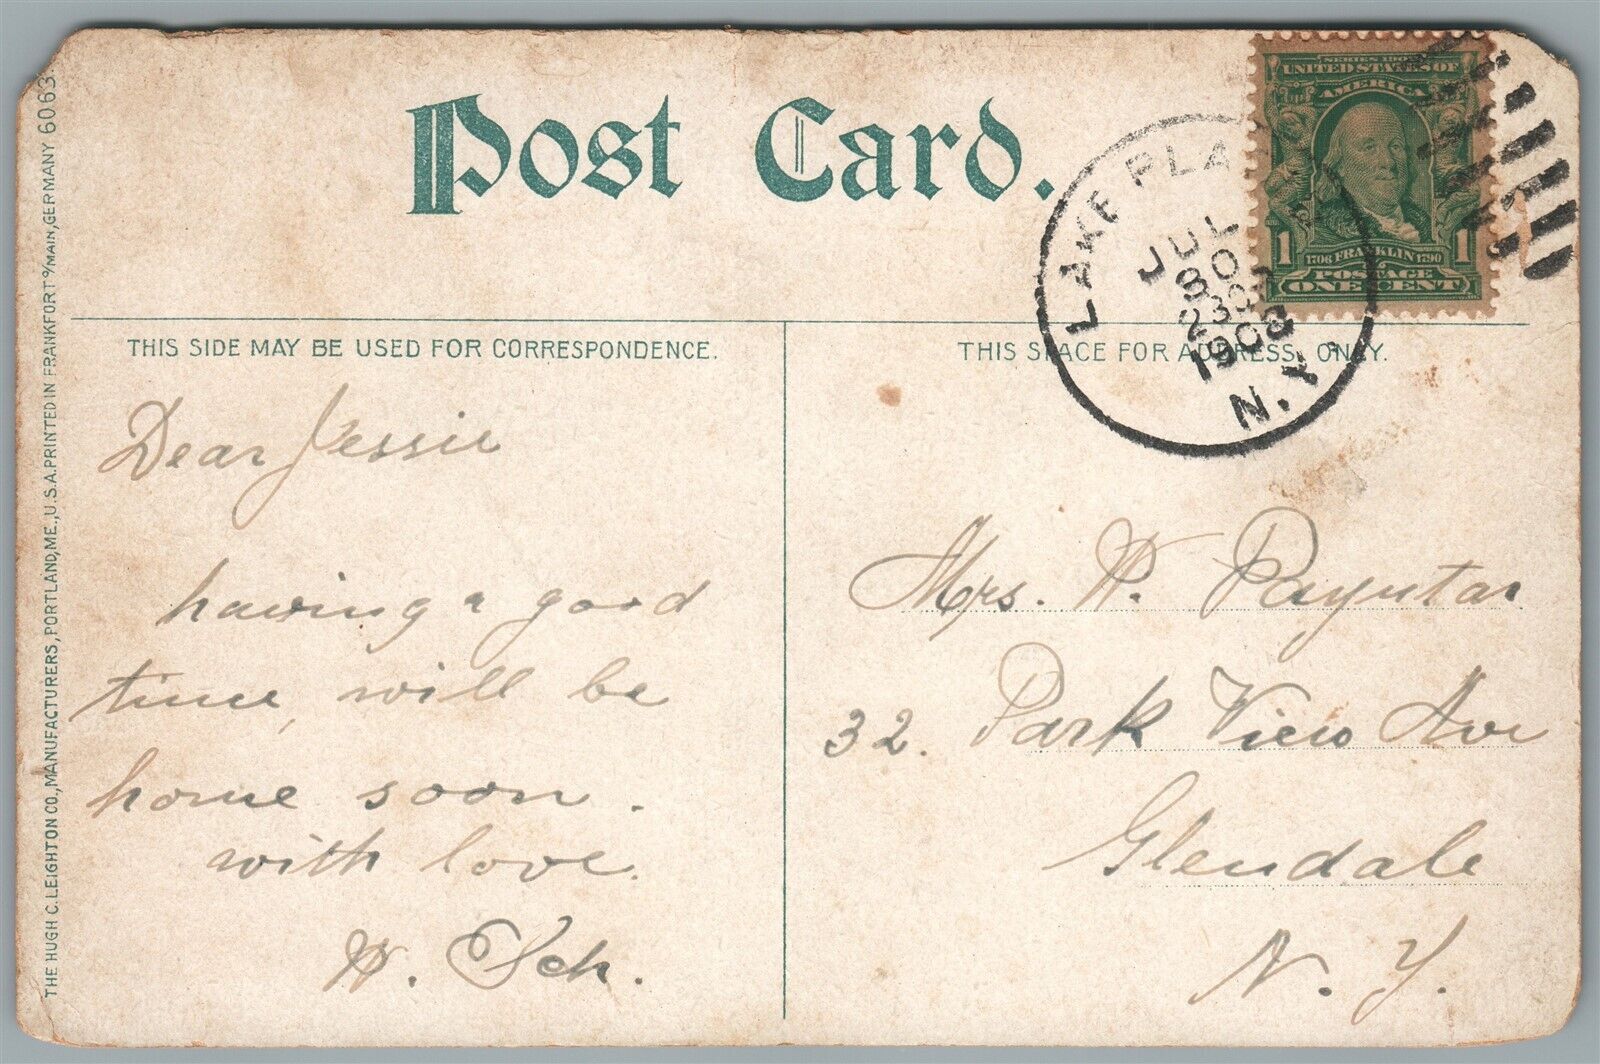 Post Card.
SERIES 1902
UNITED STATES OF
AMERICA
1 1706 FRANKLIN 1790 1
POSTAGE
ONE CENT
LAKE PLA
JUL
30
1908
N.Y.
THIS SIDE MAY BE USED FOR CORRESPONDENCE.
THIS SPACE FOR ADDRESS ONLY.
Dear Jessie
having a good
time, will be
home soon.
with love.
W. Sch.
Mrs. W. Payntar
32. Park View Ave
Glendale
N. Y.
THE HUGH C. LEIGHTON CO., MANUFACTURERS, PORTLAND, ME., U.S.A. PRINTED IN FRANKFORT o/MAIN, GERMANY 6063